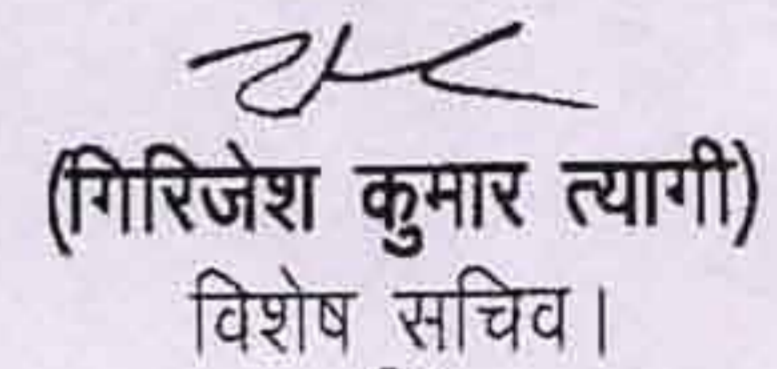 (गिरिजेश कुमार त्यागी)
विशेष सचिव।